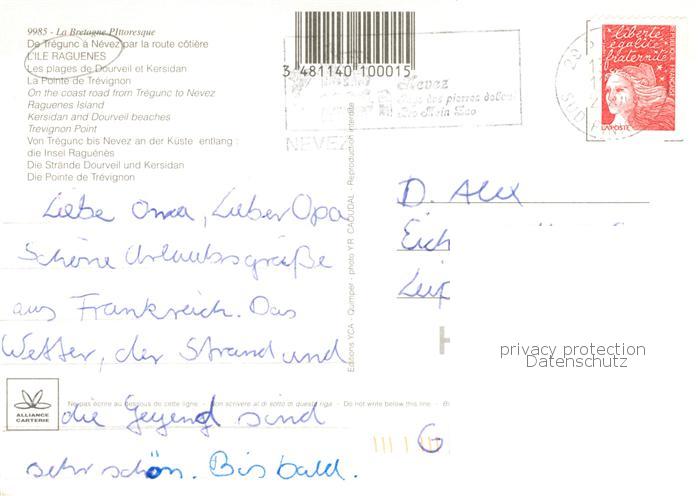 9985 - La Bretagne PIttoresque
De Trégunc à Névez par la route côtière
L'ILE RAGUENES
Les plages de Dourveil et Kersidan
La Pointe de Trévignon
On the coast road from Trégunc to Nevez
Raguenes Island
Kersidan and Dourveil beaches
Trevignon Point
Von Trégunc bis Nevez an der Küste entlang :
die Insel Raguénès
Die Strände Dourveil und Kersidan
Die Pointe de Trévignon
3 481140 100015
NEVEZ
Névez
Pays des pierres debout
liberté
égalité
fraternité
RÉPUBLIQUE FRANÇAISE
LA POSTE
29
SUD
Liebe Oma, Lieber Opa
Schöne Urlaubsgrüße
aus Frankreich. Das
Wetter, der Strand und
die Gegend sind
sehr schön. Bis bald.
Editions YCA - Quimper - photo Y.R. CAOUDAL - Reproduction interdite
D. Alex
Eich
Leip
privacy protection
Datenschutz
ALLIANCE
CARTERIE
Ne pas écrire au dessous de cette ligne - Non scrivere al di sotto di questa riga - Do not write below this line -
G